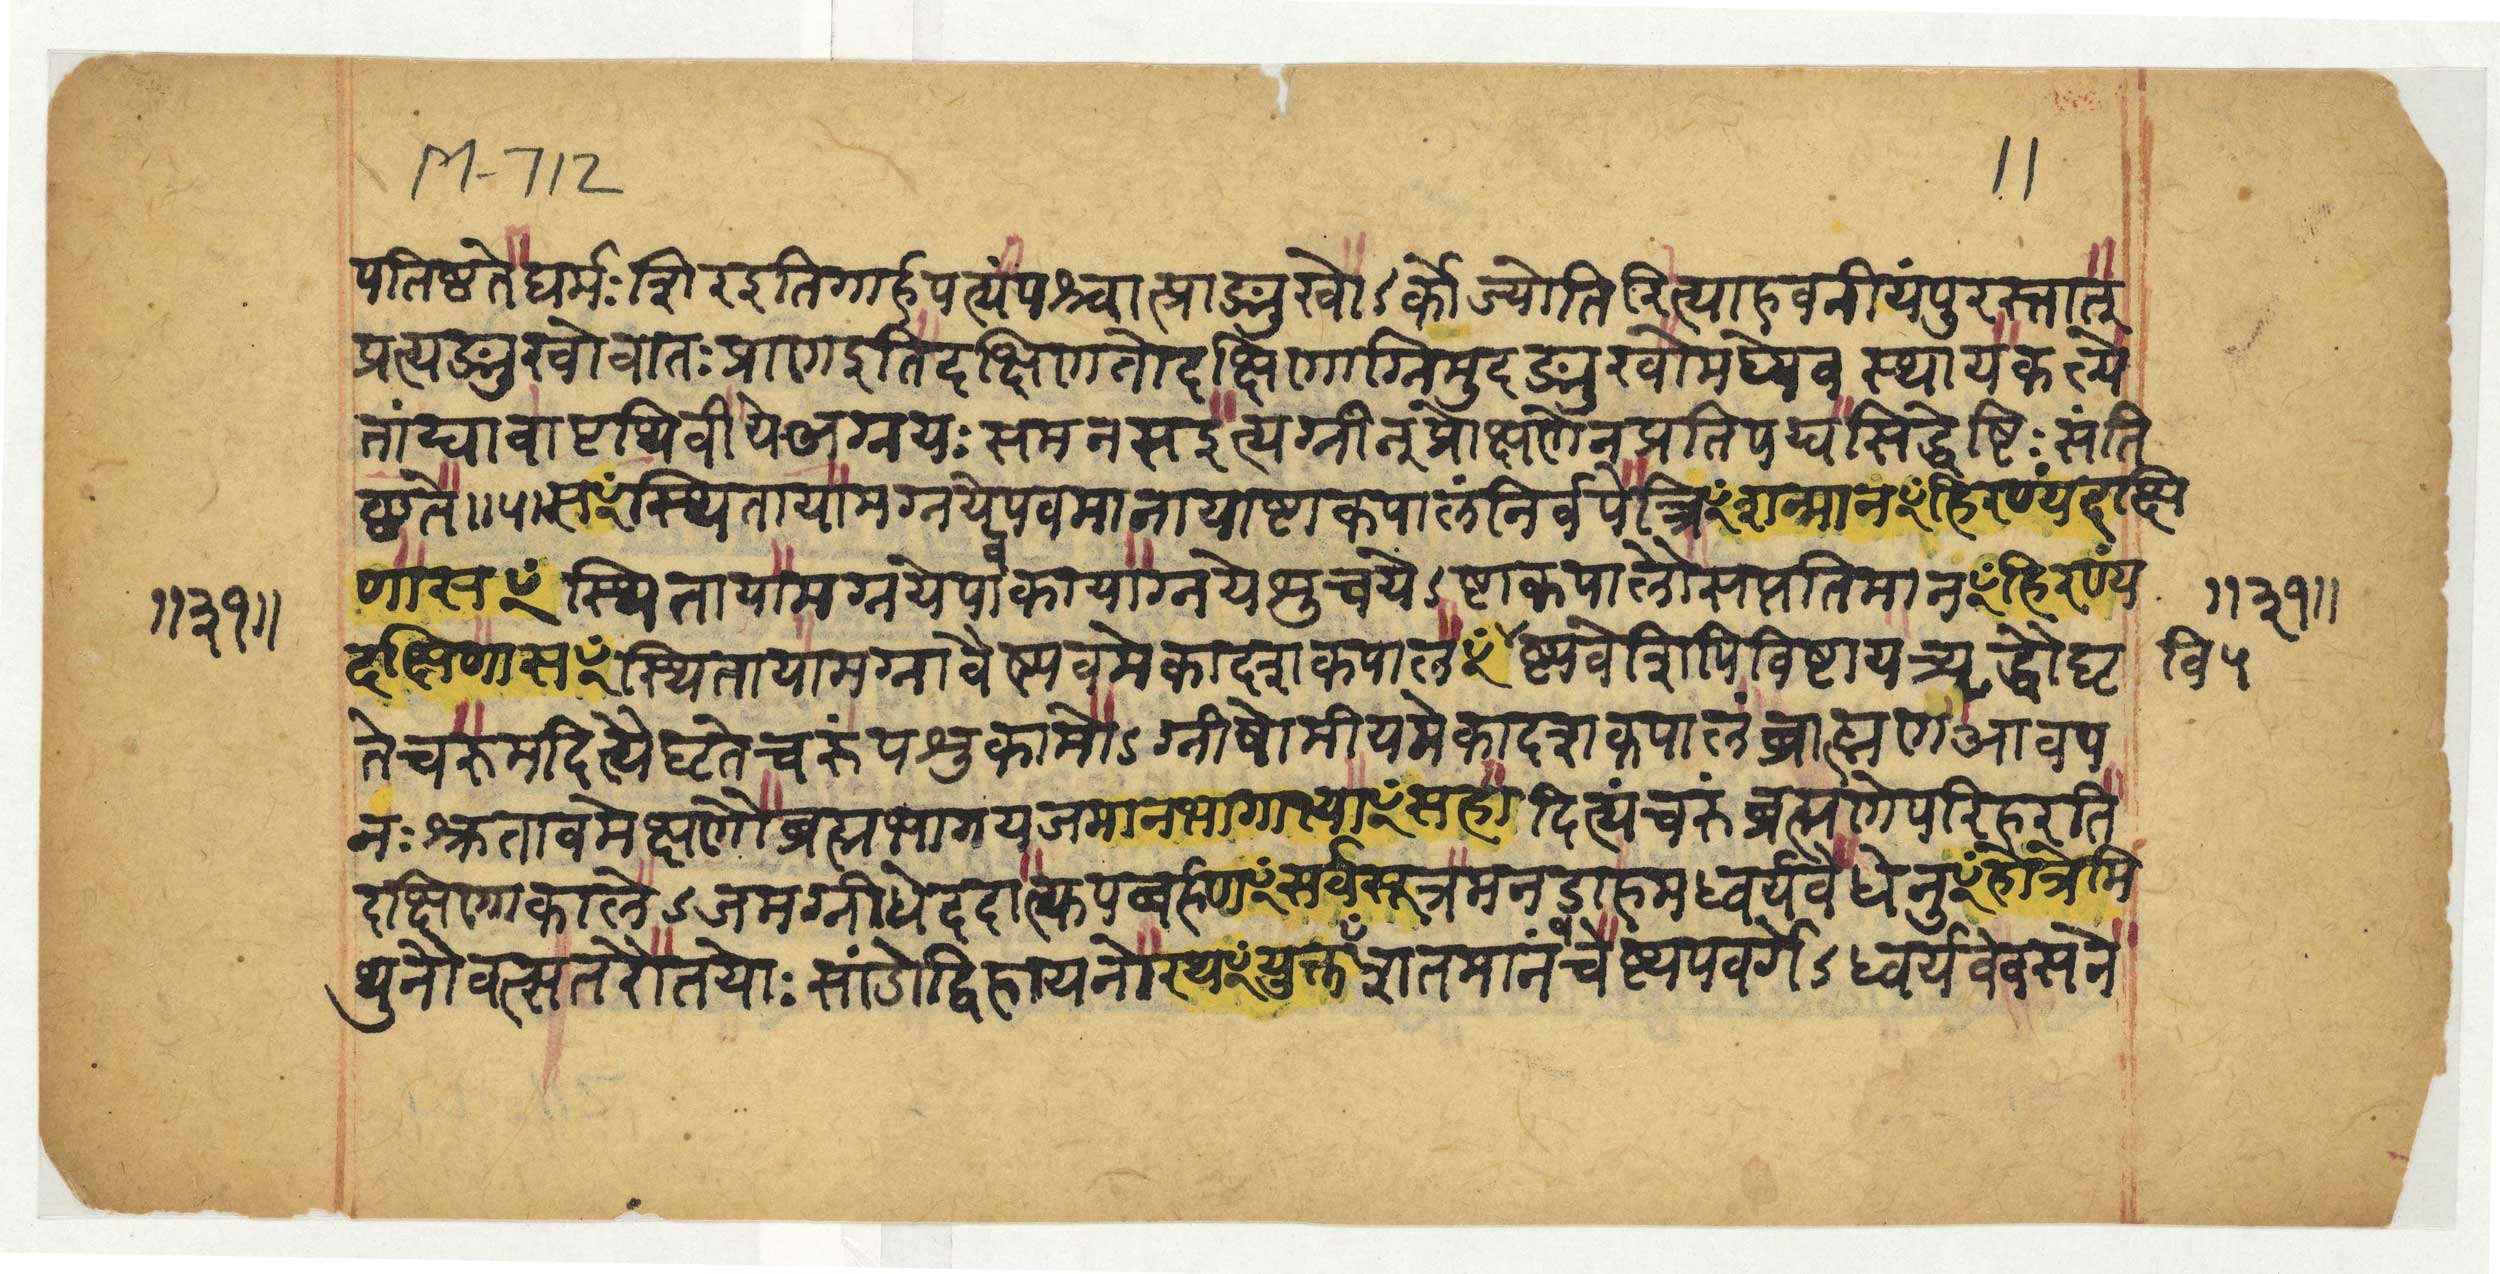 M-712
11
पतिष्ठतेघर्मःशिरइतिगार्हपत्यंपश्चात्प्राङ्मुखोऽर्कोज्योतिरित्याहवनीयंपुरस्तात्
प्रत्यङ्मुखोवातःप्राणइतिदक्षिणतोदक्षिणाग्निमुदङ्मुखोमध्येवस्थायकल्पे
तांद्यावापृथिवीयेअग्नयःसमनसइत्यग्नीन्प्रोक्षणेनप्रतिपद्यसिद्धेष्टिःसंति
ष्ठते॥५॥सꣳस्थितायामग्नयेपवमानायाष्टाकपालंनिर्वपेत्त्रिꣳशन्मानꣳहिरण्यंदक्षि
णासꣳस्थितायामग्नयेपावकायाग्नयेशुचयेऽष्टाकपालौसप्ततिमानꣳहिरण्यं
॥३१॥
॥३१॥
दक्षिणासꣳस्थितायामग्नावैष्णवमेकादशकपालꣳष्णवेशिपिविष्टायत्र्युद्धौघृ
वि५
तेचरुमदित्यैघृतेचरुंपशुकामोऽग्नीषोमीयमेकादशकपालंब्राह्मणआवप
नःश्रुतावमेक्षणौब्रह्मभागयजमानभागाभ्याꣳसहादित्यंचरुंब्रह्मणेपरिहरति
दक्षिणाकालेऽजमग्नीधेददात्युपबर्हणꣳसर्वसूत्रमनड्वाहमध्वर्यवेधेनुꣳहोत्रेमि
थुनौवत्सतरौतयोःसांडोद्विहायनोरथꣳयुक्तꣳशतमानंचेष्ट्यपवर्गेऽध्वर्यवेवसने